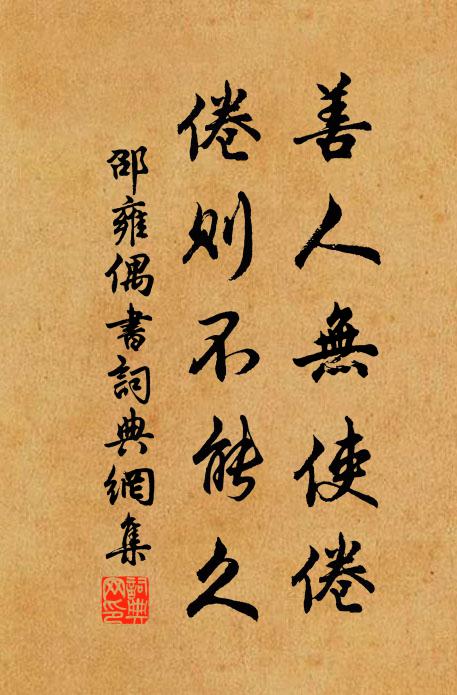 善人無使倦
倦則不能久
邵雍偶書詞典網集
詞典網印